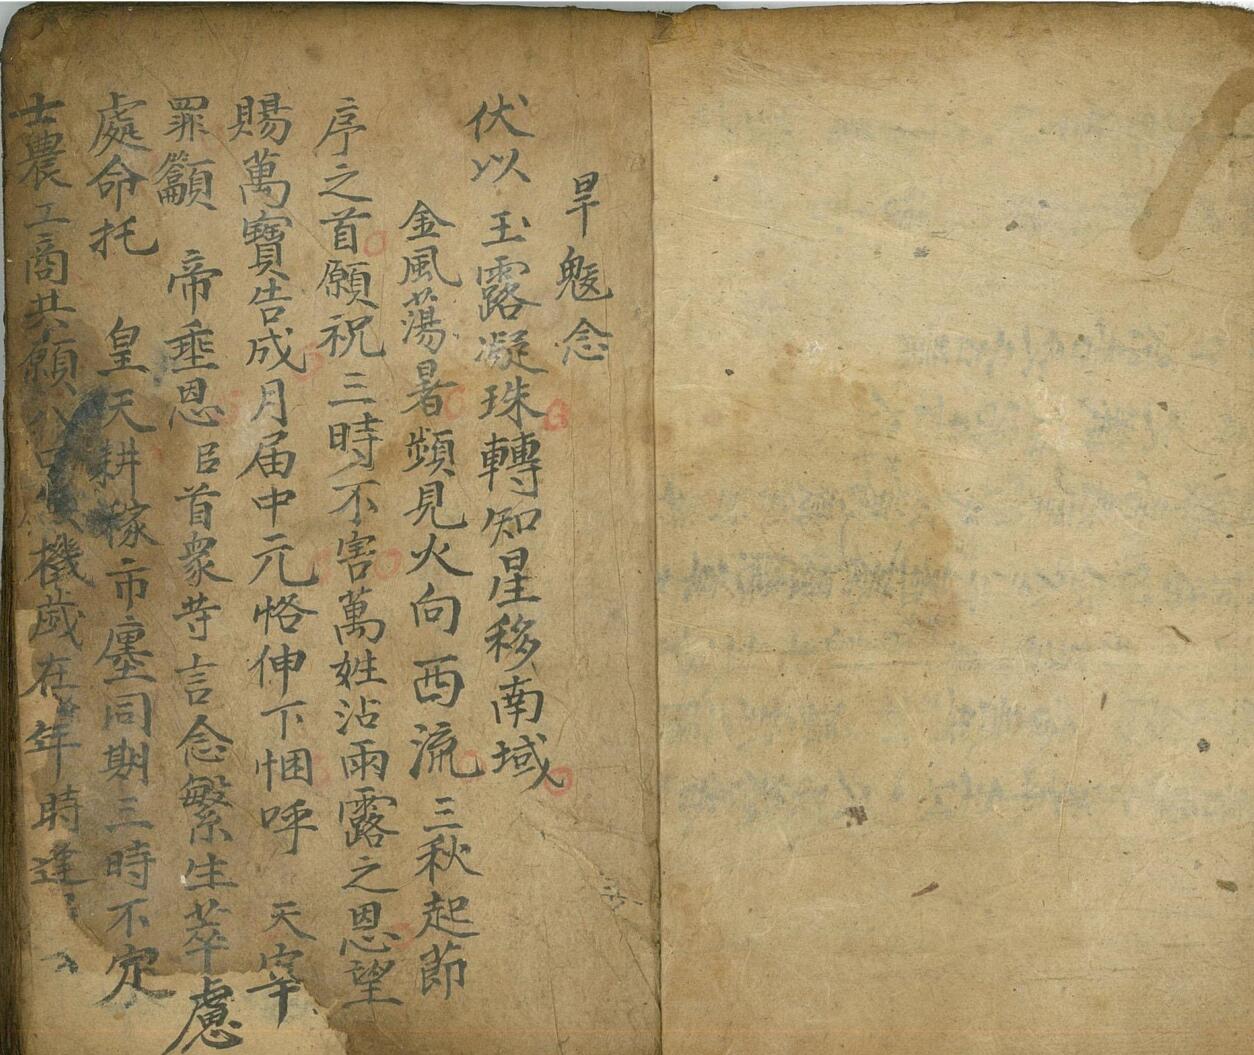 旱魃念
伏以玉露凝珠轉知星移南域
金風蕩暑頻見火向西流三秋起節
序之首願祝三時不害萬姓沾雨露之恩望
賜萬寶告成月届中元恪伸下悃呼 天宰
罪籲 帝垂恩臣首衆等言念繁生萃處
處命托 皇天耕稼市廛同期三時不定
士農工商共願八口 機歲在 年時逢